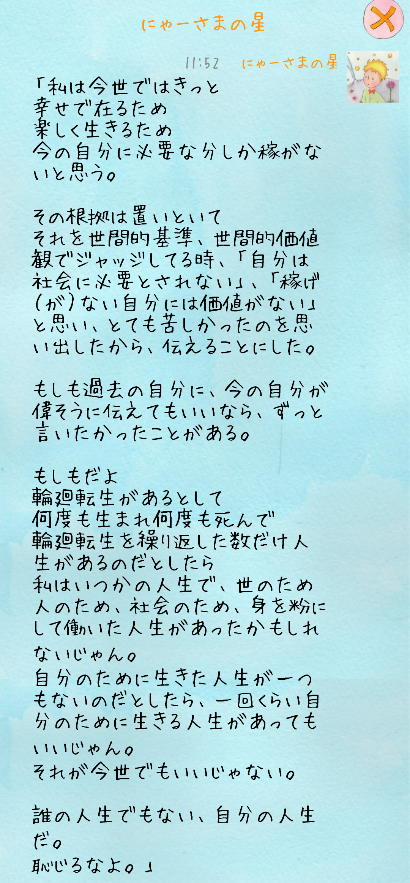 にゃーさまの星
11:52 にゃーさまの星
「私は今世ではきっと
幸せで在るため
楽しく生きるため
今の自分に必要な分しか稼がな
いと思う。
その根拠は置いといて
それを世間的基準、世間的価値
観でジャッジしてる時、「自分は
社会に必要とされない」、「稼げ
(が)ない自分には価値がない」
と思い、とても苦しかったのを思
い出したから、伝えることにした。
もしも過去の自分に、今の自分が
偉そうに伝えてもいいなら、ずっと
言いたかったことがある。
もしもだよ
輪廻転生があるとして
何度も生まれ何度も死んで
輪廻転生を繰り返した数だけ人
生があるのだとしたら
私はいつかの人生で、世のため
人のため、社会のため、身を粉に
して働いた人生があったかもしれ
ないじゃん。
自分のために生きた人生が一つ
もないのだとしたら、一回くらい自
分のために生きる人生があっても
いいじゃん。
それが今世でもいいじゃない。
誰の人生でもない、自分の人生
だ。
恥じるなよ。」